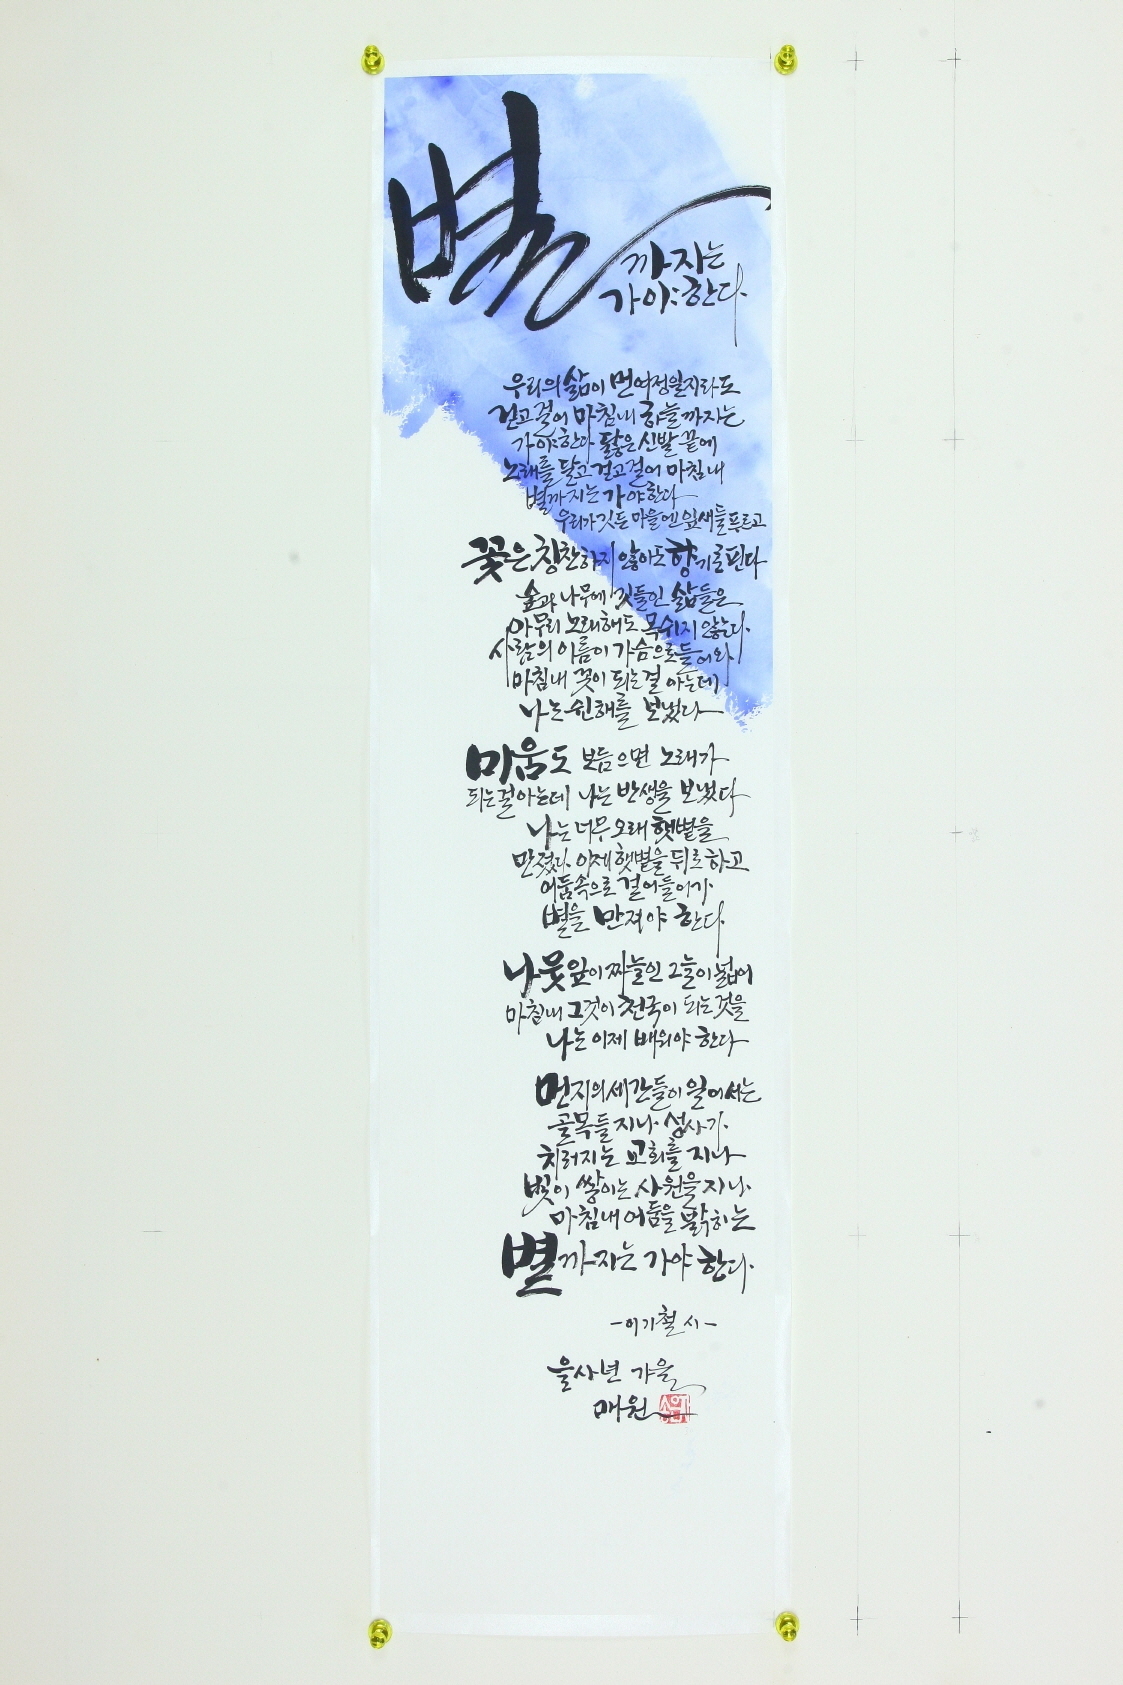 별
까지는
가야 한다.
우리의 삶이 먼 여정일지라도
걷고 걸어 마침내 하늘까지는
가야한다 닳은 신발 끝에
노래를 달고 걷고 걸어 마침내
별까지는 가야한다
우리가 깃든 마을엔 잎새들 푸르고
꽃은 칭찬하지 않아도 향기로 핀다
숲과 나무에 깃들인 삶들은
아무리 노래해도 목쉬지 않는다.
사람의 이름이 가슴으로 들어와
마침내 꽃이 되는걸 아는데
나는 쉰해를 보냈다
미움도 보듬으면 노래가
되는걸 아는데 나는 반생을 보냈다
나는 너무 오래 햇볕을
만졌다. 이제 햇볕을 뒤로 하고
어둠속으로 걸어들어가
별을 만져야 한다.
나뭇잎이 짜 늘인 그늘이 넓어
마침내 그것이 천국이 되는 것을
나는 이제 배워야 한다
먼지의 세간들이 일어서는
골목들 지나 성사가
치러지는 교회를 지나
빛이 쌓이는 사원을 지나
마침내 어둠을 밝히는
별까지는 가야 한다.
-이기철 시-
을사년 가을
매원